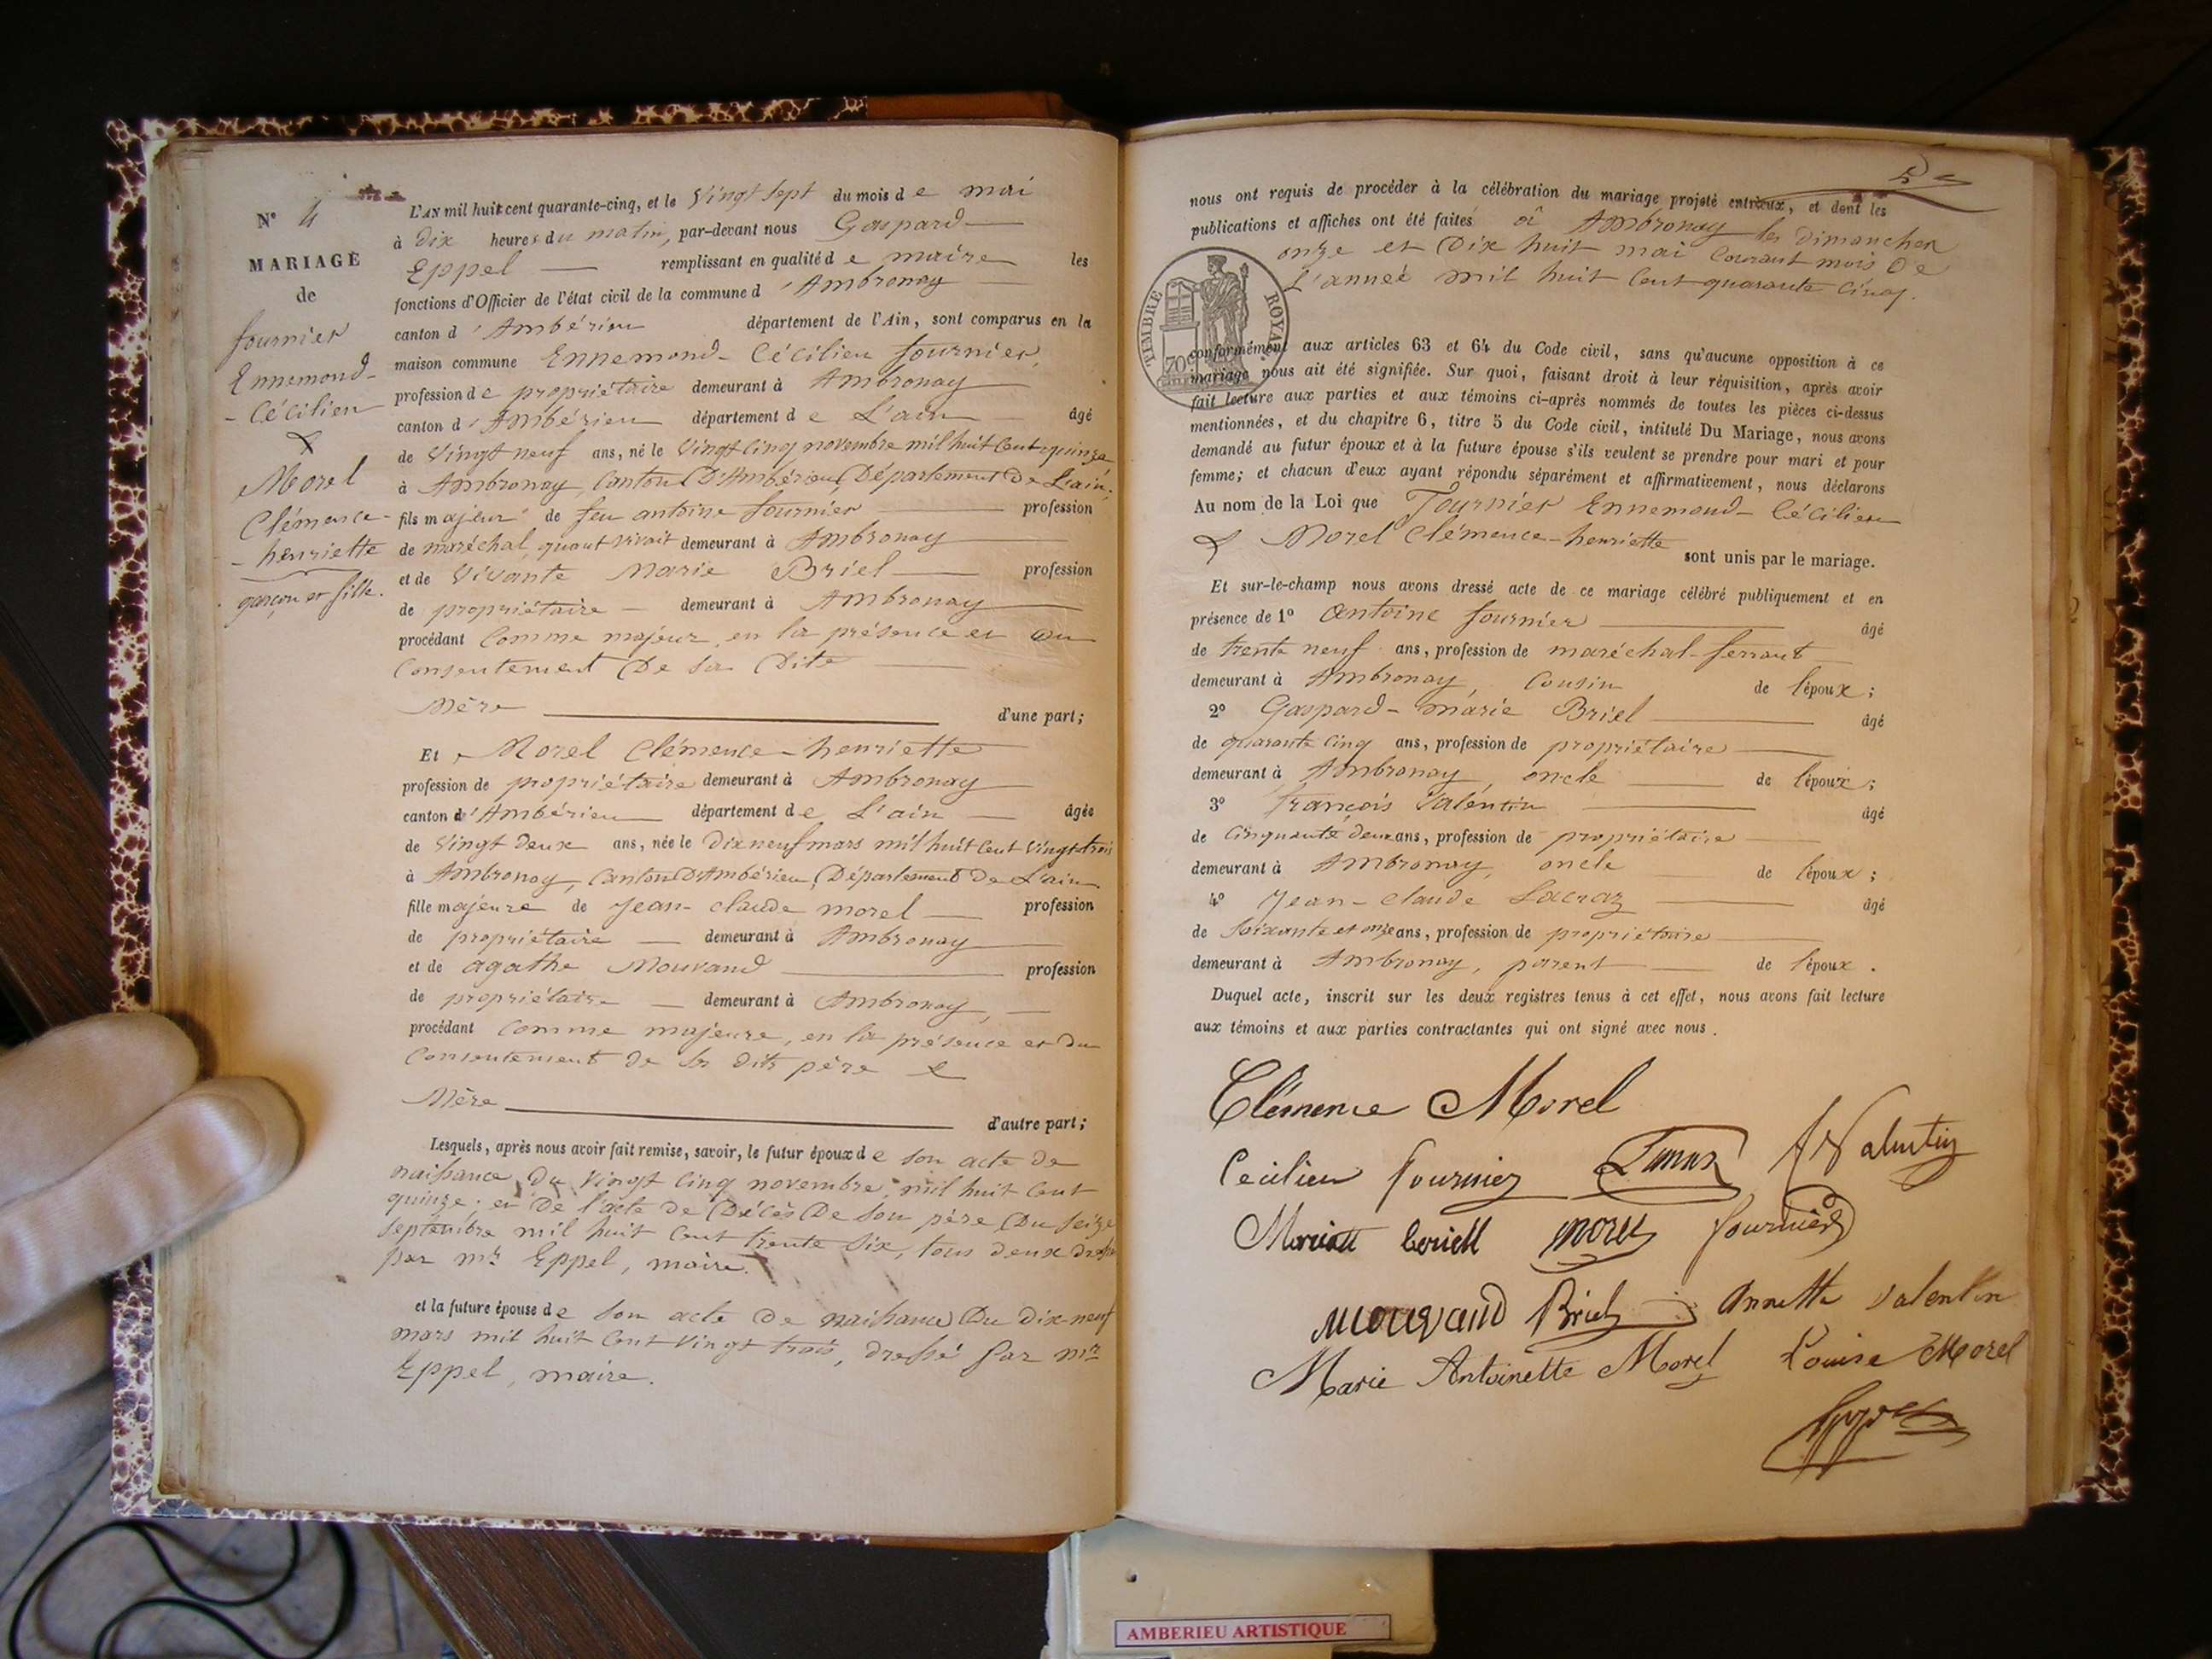 N° 4
MARIAGE
de
fournier
Ennemond-
-Cécilien
&
Morel
Clémence-
-henriette
garçon et fille.
L'AN mil huit cent quarante-cinq, et le Vingt sept du mois de mai
à Dix heures du matin, par-devant nous Gaspard
Eppel remplissant en qualité de maire les
fonctions d'Officier de l'état civil de la commune d'Ambronay
canton d'Ambérieu département de l'Ain, sont comparus en la
maison commune Ennemond-Cécilien fournier,
profession de propriétaire demeurant à Ambronay
canton d'Ambérieu département de L'ain âgé
de Vingt neuf ans, né le Vingt Cinq novembre mil huit Cent quinze
à Ambronay, Canton D'Ambérieu, Département De L'ain;
fils majeur de feu antoine fournier profession
de maréchal, quant vivait demeurant à Ambronay
et de Vivante Marie Briel profession
de propriétaire demeurant à Ambronay
procédant Comme majeur, en la présence et au
Consentement De sa Dite
Mère d'une part;
Et Morel Clémence-henriette
profession de propriétaire demeurant à Ambronay
canton d'Ambérieu département de L'ain âgée
de Vingt deux ans, née le Dix neuf mars mil huit Cent Vingt trois
à Ambronay, Canton D'Ambérieu, Département De L'ain
fille majeure de Jean-claude morel profession
de propriétaire demeurant à Ambronay
et de agathe Mouvand profession
de propriétaire demeurant à Ambronay,
procédant Comme majeure, en la présence et du
Consentement de ses dits père &
Mère d'autre part;
Lesquels, après nous avoir fait remise, savoir, le futur époux de son acte de
naissance Du Vingt Cinq novembre mil huit Cent
quinze; et De l'acte de Décès De son père Du seize
septembre mil huit Cent trente six, tous deux
par mr Eppel, maire.
et la future épouse de son acte De naissance Du dix-neuf
mars mil huit Cent Vingt trois, dressé par mr
Eppel, maire.
nous ont requis de procéder à la célébration du mariage projeté entr'eux, et dont les
publications et affiches ont été faites à Ambronay les Dimanches
onze et Dix huit mai Courant mois De
L'année mil huit Cent quarante Cinq.
TIMBRE ROYAL
70
conformément aux articles 63 et 64 du Code civil, sans qu'aucune opposition à ce
mariage nous ait été signifiée. Sur quoi, faisant droit à leur réquisition, après avoir
fait lecture aux parties et aux témoins ci-après nommés de toutes les pièces ci-dessus
mentionnées, et du chapitre 6, titre 5 du Code civil, intitulé Du Mariage, nous avons
demandé au futur époux et à la future épouse s'ils veulent se prendre pour mari et pour
femme; et chacun d'eux ayant répondu séparément et affirmativement, nous déclarons
Au nom de la Loi que Fournier Ennemond-Cécilien
& Morel Clémence-henriette sont unis par le mariage.
Et sur-le-champ nous avons dressé acte de ce mariage célébré publiquement et en
présence de 1° Antoine fournier âgé
de trente neuf ans, profession de maréchal-ferrant
demeurant à Ambronay, Cousin de l'époux;
2° Gaspard-marie Briel âgé
de quarante cinq ans, profession de propriétaire
demeurant à Ambronay, oncle de l'époux;
3° françois Valentin âgé
de Cinquante deux ans, profession de propriétaire
demeurant à Ambronay, oncle de l'époux;
4° Jean-claude Lacraz âgé
de soixante et onze ans, profession de propriétaire
demeurant à Ambronay, parent de l'époux.
Duquel acte, inscrit sur les deux registres tenus à cet effet, nous avons fait lecture
aux témoins et aux parties contractantes qui ont signé avec nous.
Clémence Morel
Cecilien fournier fs Valentin
morel fournier
mouvand Briel Annette valentin
Marie Antoinette Morel Louise Morel
Eppel
AMBERIEU ARTISTIQUE